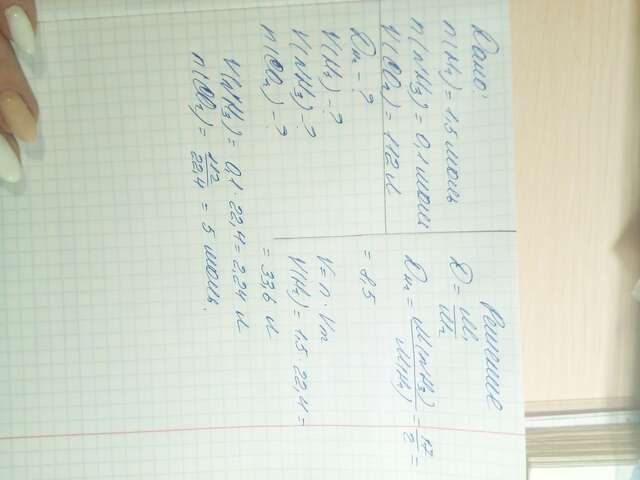 Дано:
n(H₂) = 1.5 моль
n(NH₃) = 0,1 моль
V(CO₂) = 112 л
Dн - ?
V(H₂) - ?
V(NH₃) - ?
n(CO₂) - ?
Решение
D = M₁/M₂
Dн = M(NH₃)/M(H₂) = 17/2 =
= 8,5
V = n · Vm
V(H₂) = 1.5 · 22,4 =
= 33,6 л
V(NH₃) = 0,1 · 22,4 = 2,24 л
n(CO₂) = 112/22,4 = 5 моль.